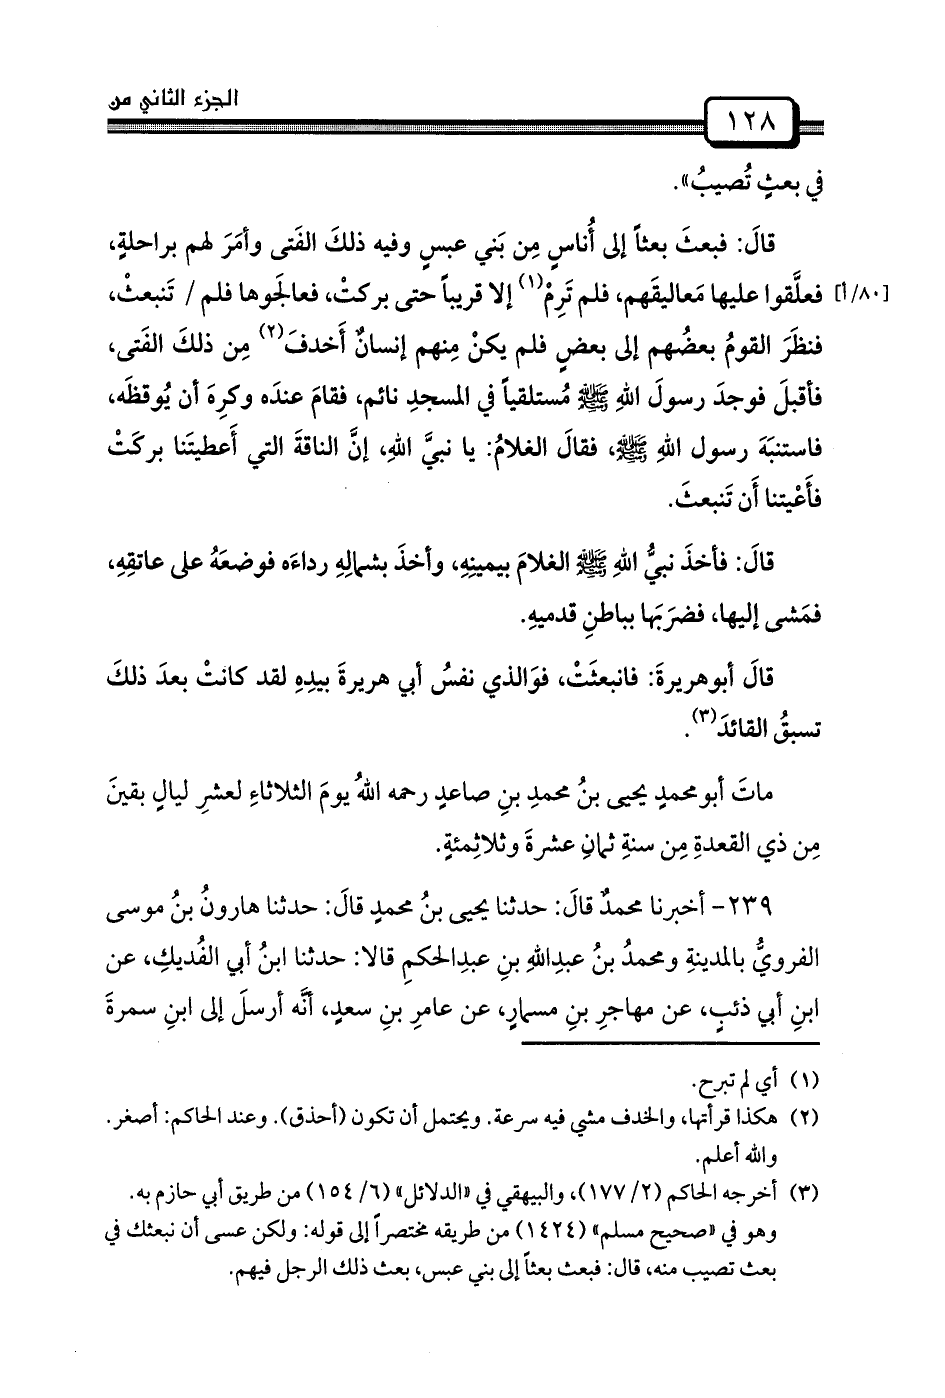 الجزء الثاني من
١٢٨
في بعثٍ تُصيبُ».
قالَ: فبعثَ بعثاً إلى أُناسٍ مِن بَني عبسٍ وفيه ذلكَ الفَتى وأمَرَ لهم براحلةٍ،
[٨٠/أ] فعلَّقوا عليها مَعاليقَهم، فلم تَرِمْ(١) إلا قريباً حتى بركتْ، فعالجَوها فلم / تَنبعثْ،
فنظَرَ القومُ بعضُهم إلى بعضٍ فلم يكنْ مِنهم إنسانٌ أَخدفَ(٢) مِن ذلكَ الفَتى،
فأقبلَ فوجدَ رسولَ اللهِ ﷺ مُستلقياً في المسجدِ نائم، فقامَ عندَه وكرِهَ أن يُوقظَه،
فاستنبَهَ رسول اللهِ ﷺ، فقالَ الغلامُ: يا نبيَّ اللهِ، إنَّ الناقةَ التي أَعطيتَنا بركَتْ
فأَعْيتنا أَن تَنبعثَ.
قالَ: فأخذَ نبيُّ اللهِ ﷺ الغلامَ بيمينِهِ، وأخذَ بشمالِهِ رداءَه فوضعَهُ على عاتقِهِ،
فمَشى إليها، فضرَبَها بباطنِ قدميهِ.
قالَ أبوهريرةَ: فانبعثَتْ، فوَالذي نفسُ أبي هريرةَ بيدِهِ لقد كانتْ بعدَ ذلكَ
تسبقُ القائدَ(٣).
ماتَ أبومحمدٍ يحيى بنُ محمدِ بنِ صاعدٍ رحمه اللهُ يومَ الثلاثاءِ لعشرِ ليالٍ بقينَ
مِن ذي القعدةِ مِن سنةِ ثمانِ عشرةَ وثلاثِمئةٍ.
٢٣٩- أخبرنا محمدٌ قالَ: حدثنا يحيى بنُ محمدٍ قالَ: حدثنا هارونُ بنُ موسى
الفرويُّ بالمدينةِ ومحمدُ بنُ عبدِاللهِ بنِ عبدِالحكمِ قالا: حدثنا ابنُ أبي الفُديكِ، عن
ابنِ أبي ذئبٍ، عن مهاجرِ بنِ مسمارٍ، عن عامرِ بنِ سعدٍ، أنَّه أرسلَ إلى ابنِ سمرةَ
(١) أي لم تبرح.
(٢) هكذا قرأتها، والخدف مشي فيه سرعة. ويحتمل أن تكون (أحذق). وعند الحاكم: أصغر.
والله أعلم.
(٣) أخرجه الحاكم (٢/ ١٧٧)، والبيهقي في «الدلائل» (٦/ ١٥٤) من طريق أبي حازم به.
وهو في «صحيح مسلم» (١٤٢٤) من طريقه مختصراً إلى قوله: ولكن عسى أن نبعثك في
بعث تصيب منه، قال: فبعث بعثاً إلى بني عبس، بعث ذلك الرجل فيهم.